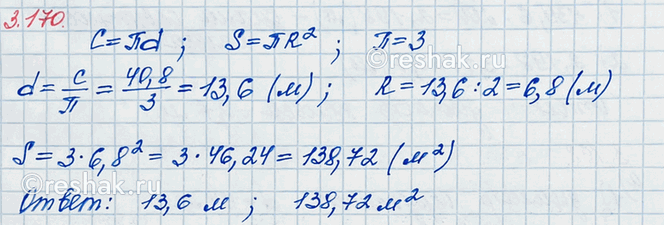 3.170.
C=πd ; S=πR² ; π=3
d=C/π=40,8/3=13,6 (м) ; R=13,6:2=6,8(м)
S=3·6,8²=3·46,24=138,72 (м²)
Ответ: 13,6 м ; 138,72 м²